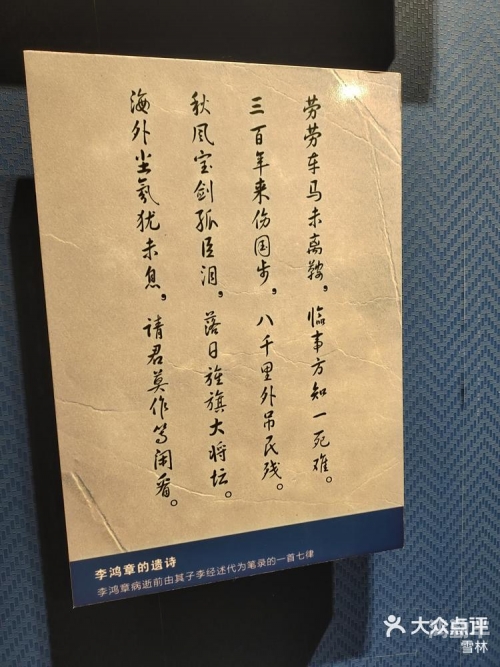 劳劳车马未离鞍，临事方知一死难。
三百年来伤国步，八千里外吊民残。
秋风宝剑孤臣泪，落日旌旗大将坛。
海外尘氛犹未息，请君莫作等闲看。
李鸿章的遗诗
李鸿章病逝前由其子李经述代为笔录的一首七律
大众点评
雪林